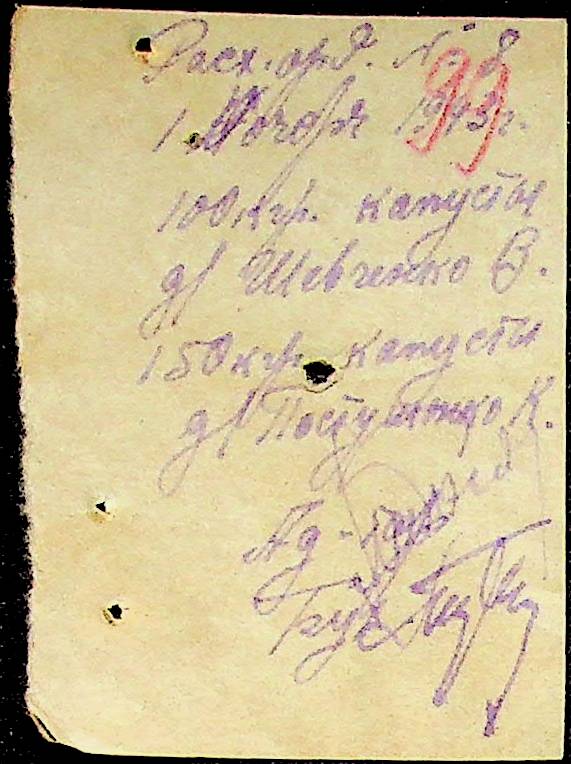 Расх. орд. № 8
99
1 Ноября 1943 г.
100 кгр. капусты
д/ Шевченко В.
150 кгр. капусты
д/ К.